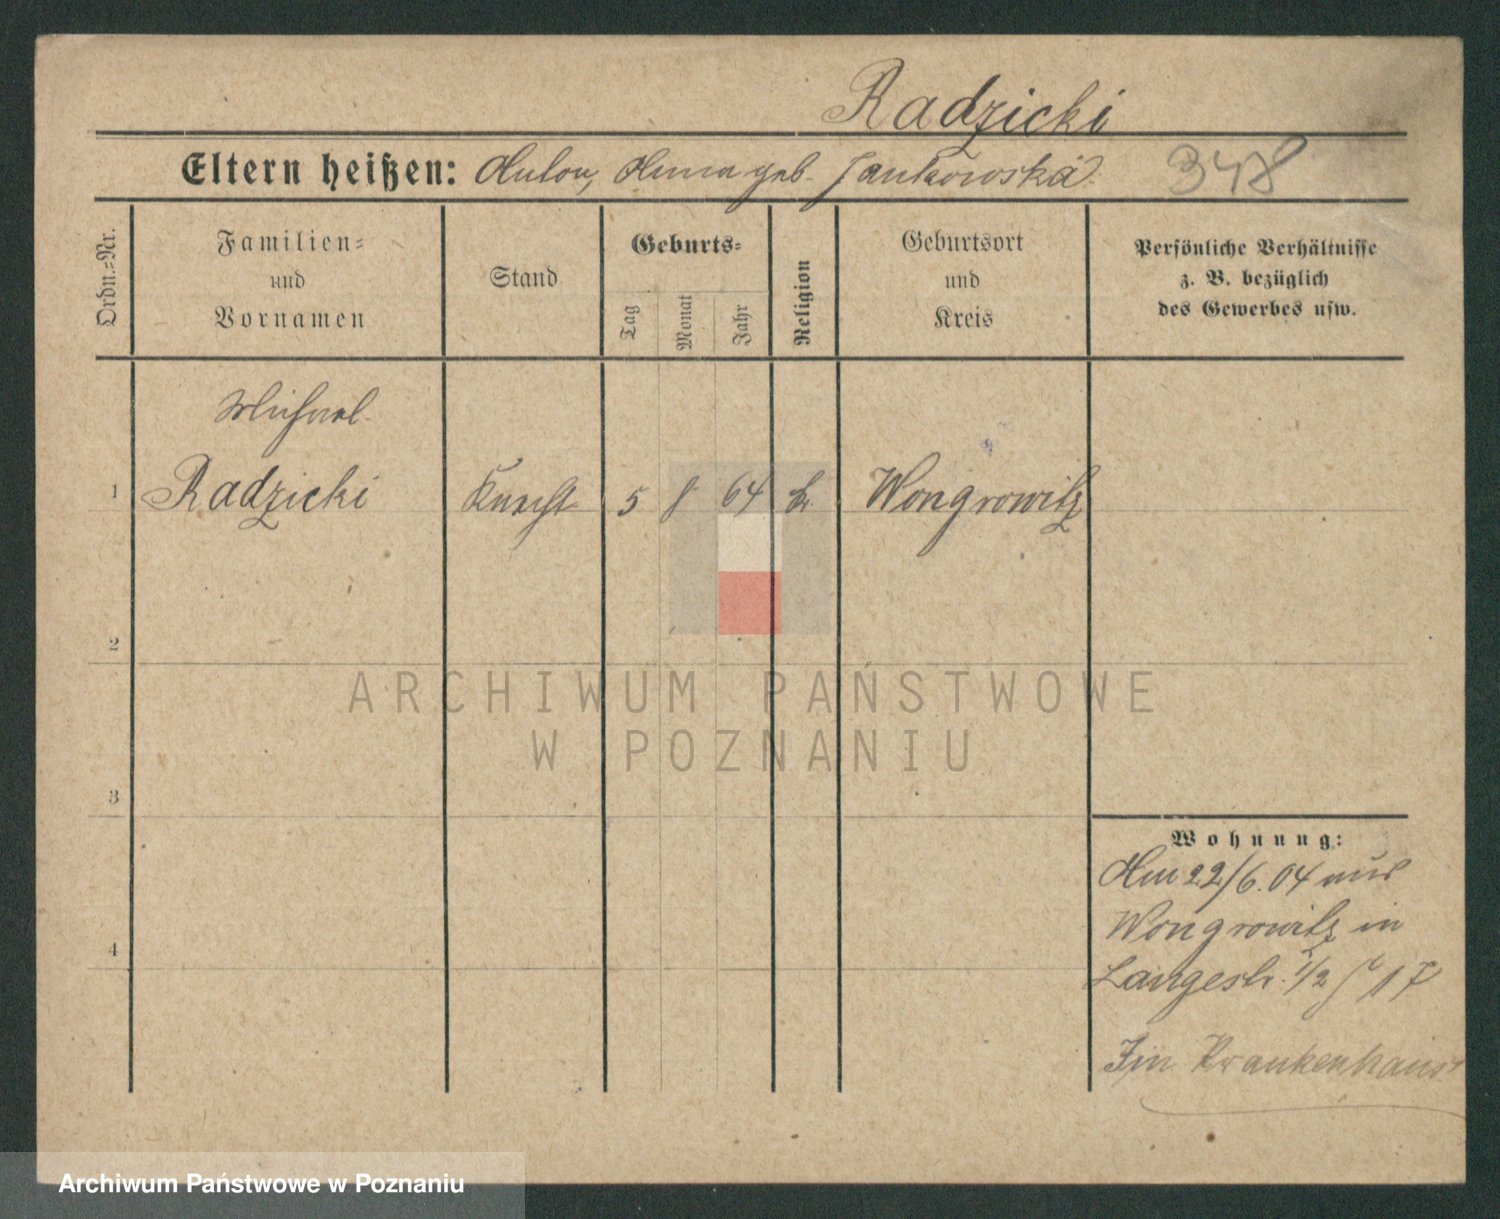 Radzicki
Eltern heißen: Anton, Anna geb. Jankowska.
348
Ordn.-Nr.
Familien-
und
Vornamen
Stand
Geburts-
Tag
Monat
Jahr
Religion
Geburtsort
und
Kreis
Persönliche Verhältnisse
z. B. bezüglich
des Gewerbes usw.
Michael
1 Radzicki Knecht 5 8 64 k. Wongrowitz
2
3
4
ARCHIWUM PAŃSTWOWE
W POZNANIU
Wohnung:
Am 22/6.04 aus
Wongrowitz in
Langestr. 1/2
Im Krankenhaus
Archiwum Państwowe w Poznaniu